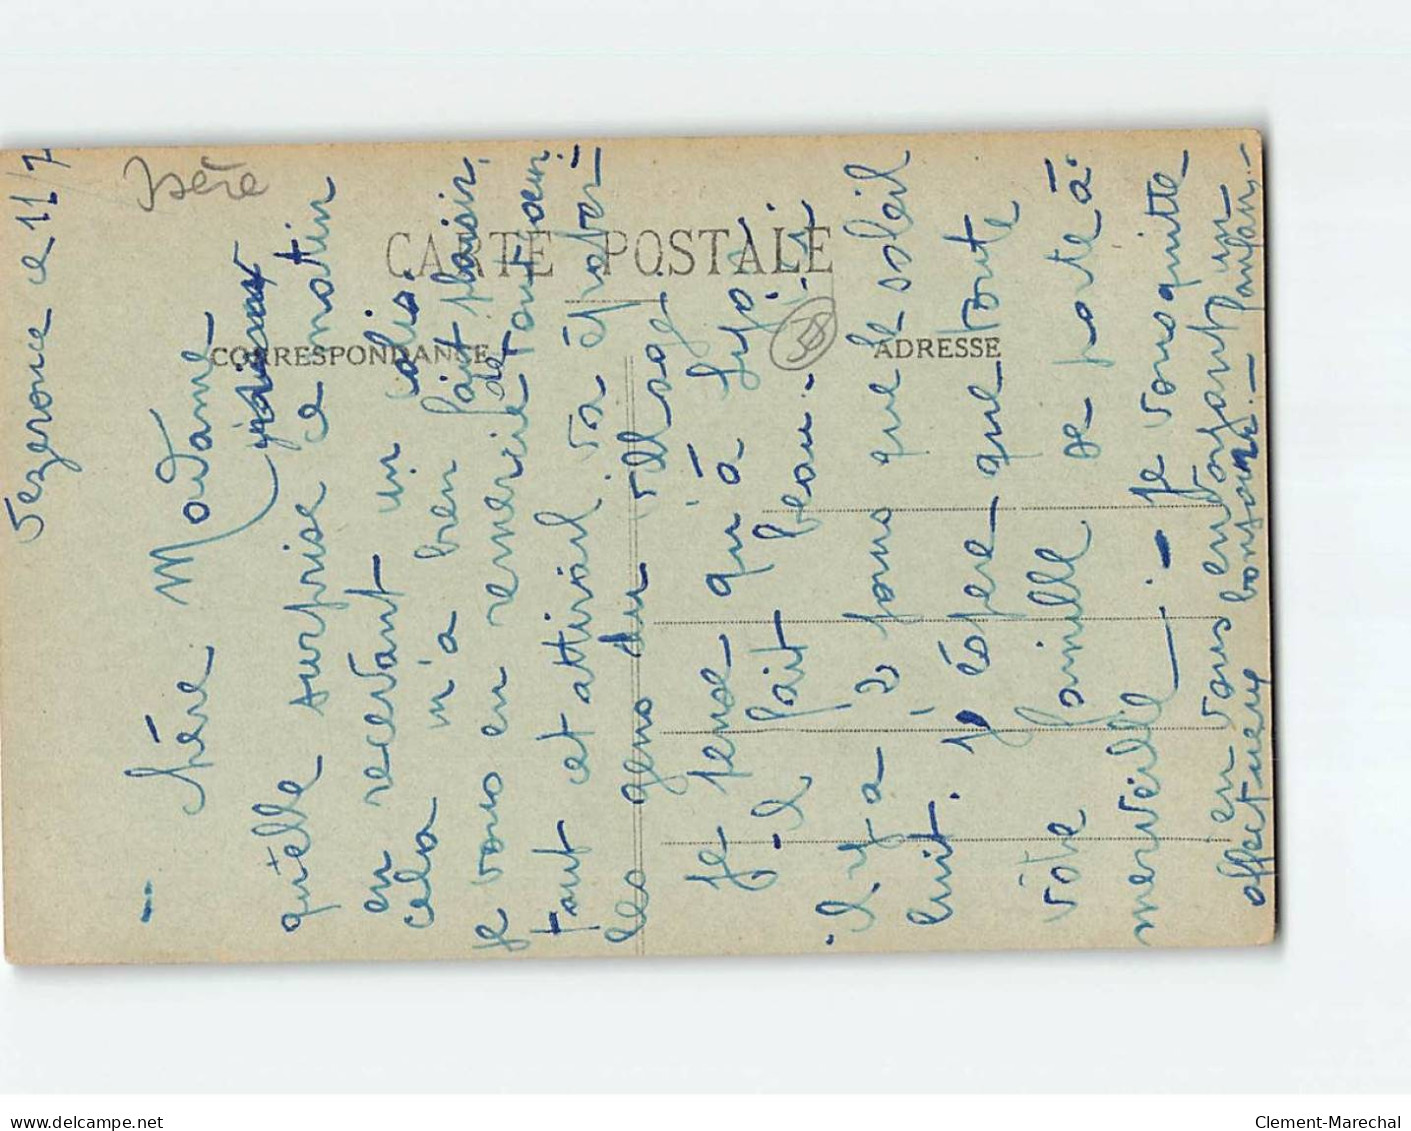 Vezeronce ce 11/7
Isère
CARTE POSTALE
CORRESPONDANCE
ADRESSE
38
Chère Madame
qu'elle surprise ce matin
en recevant un colis.
cela m'a bien fait plaisir,
je vous en remercie de tout coeur.
tout et attirail va épater
les gens du village
je pense qu'à Lyon
il fait beau - ici
il y a 2 jours que le soleil
luit. j'éspère que toute
vôtre famille se porte à
merveille - je vous quitte
en vous envoyant un
affectueux bonsoir.-
www.delcampe.net
Clement-Marechal